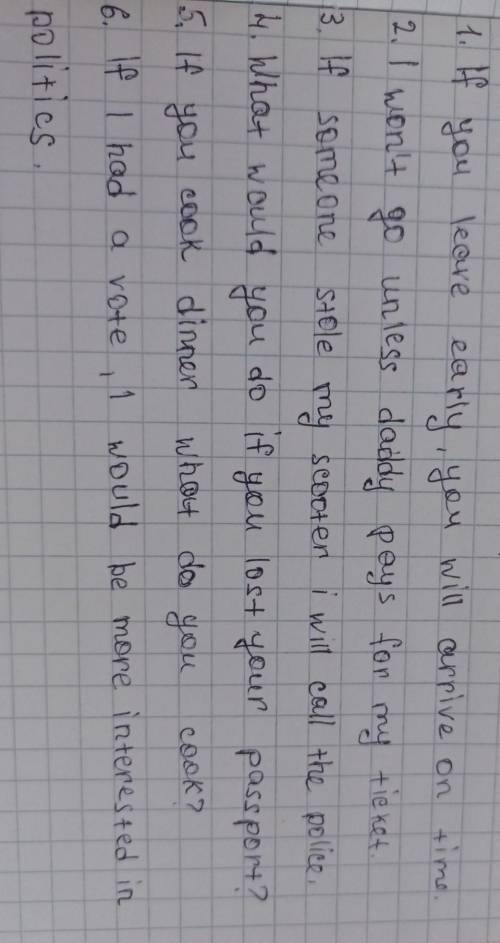 1. If you leave early, you will arrive on time.
2. I won't go unless daddy pays for my ticket.
3. If someone stole my scooter i will call the police.
4. What would you do if you lost your passport?
5. If you cook dinner what do you cook?
6. If I had a vote, I would be more interested in
politics.